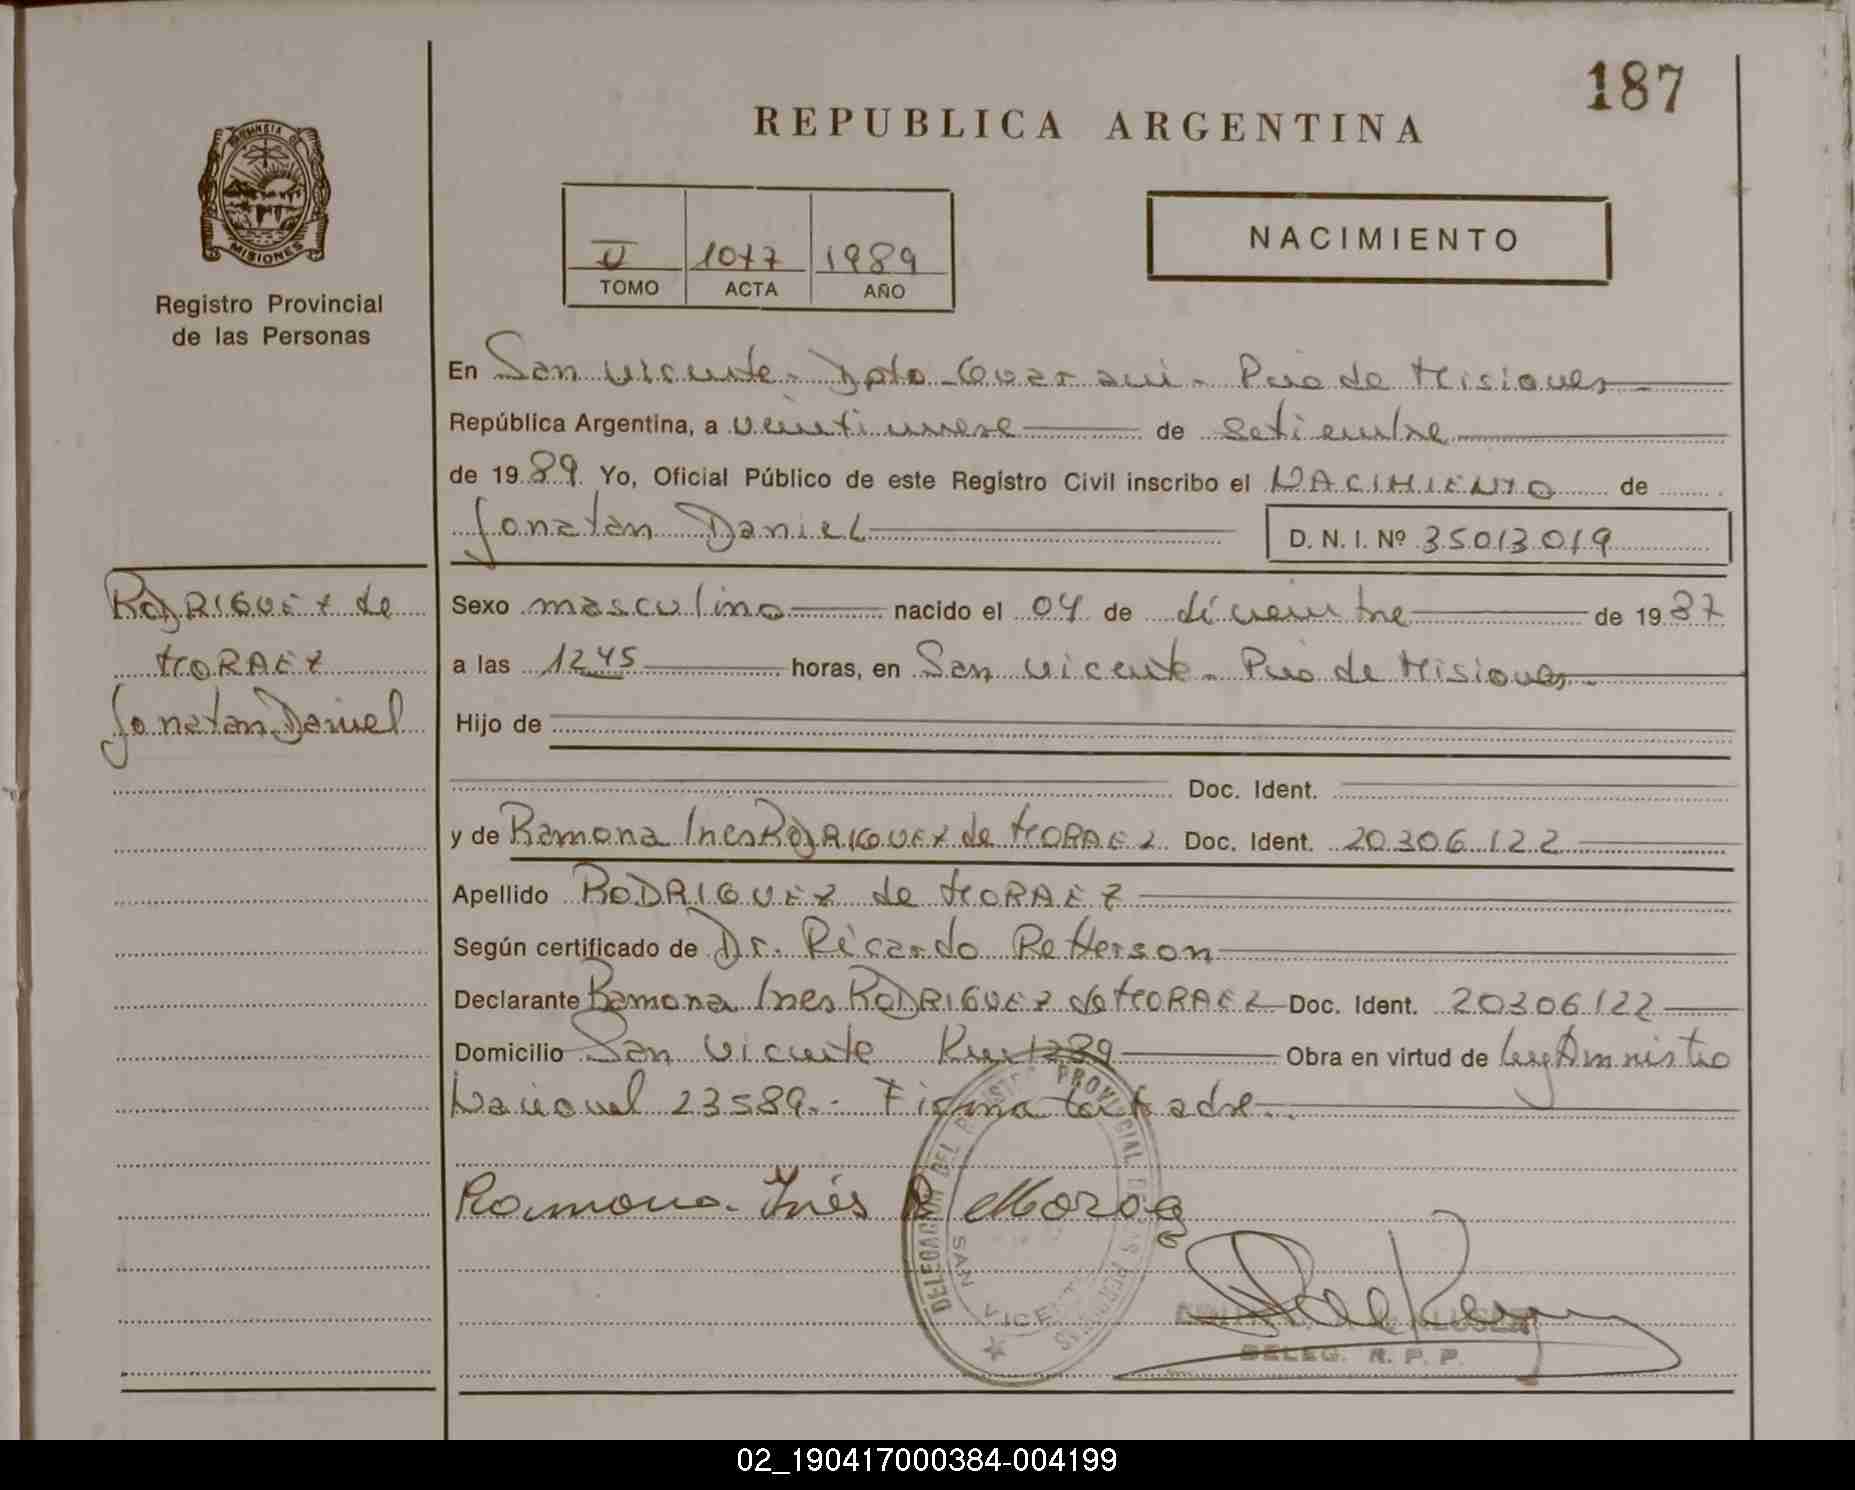 187
REPUBLICA ARGENTINA
PROVINCIA DE
MISIONES
Registro Provincial
de las Personas
V 1077 1989
TOMO ACTA AÑO
NACIMIENTO
En San Vicente - Dpto Guarani - Pcia de Misiones
República Argentina, a veintinueve de setiembre
de 1989 Yo, Oficial Público de este Registro Civil inscribo el NACIMIENTO de
Jonatan Daniel D. N. I. Nº 35013019
RODRIGUEZ de
MORAEZ
Jonatan Daniel
Sexo masculino nacido el 04 de diciembre de 1987
a las 12 45 horas, en San Vicente - Pcia de Misiones
Hijo de
Doc. Ident.
y de Ramona Ines RODRIGUEZ de MORAEZ Doc. Ident. 20306122
Apellido RODRIGUEZ de MORAEZ
Según certificado de Dr. Ricardo Petterson
Declarante Ramona Ines RODRIGUEZ de MORAEZ Doc. Ident. 20306122
Domicilio San Vicente Km 1289 Obra en virtud de Ley Amnistia
Nacional 23589.- Firma la Madre
Ramona Inés R Moraez
DELEGACION DEL REGISTRO PROVINCIAL DE LAS PERSONAS
SAN VICENTE
DELEG. R. P. P.
02_190417000384-004199